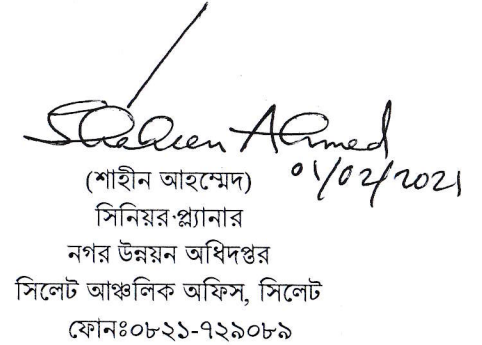 Shaheen Ahmed
01/02/2021
(শাহীন আহম্মেদ)
সিনিয়র প্ল্যানার
নগর উন্নয়ন অধিদপ্তর
সিলেট আঞ্চলিক অফিস, সিলেট
ফোনঃ০৮২১-৭২৯০৮৯